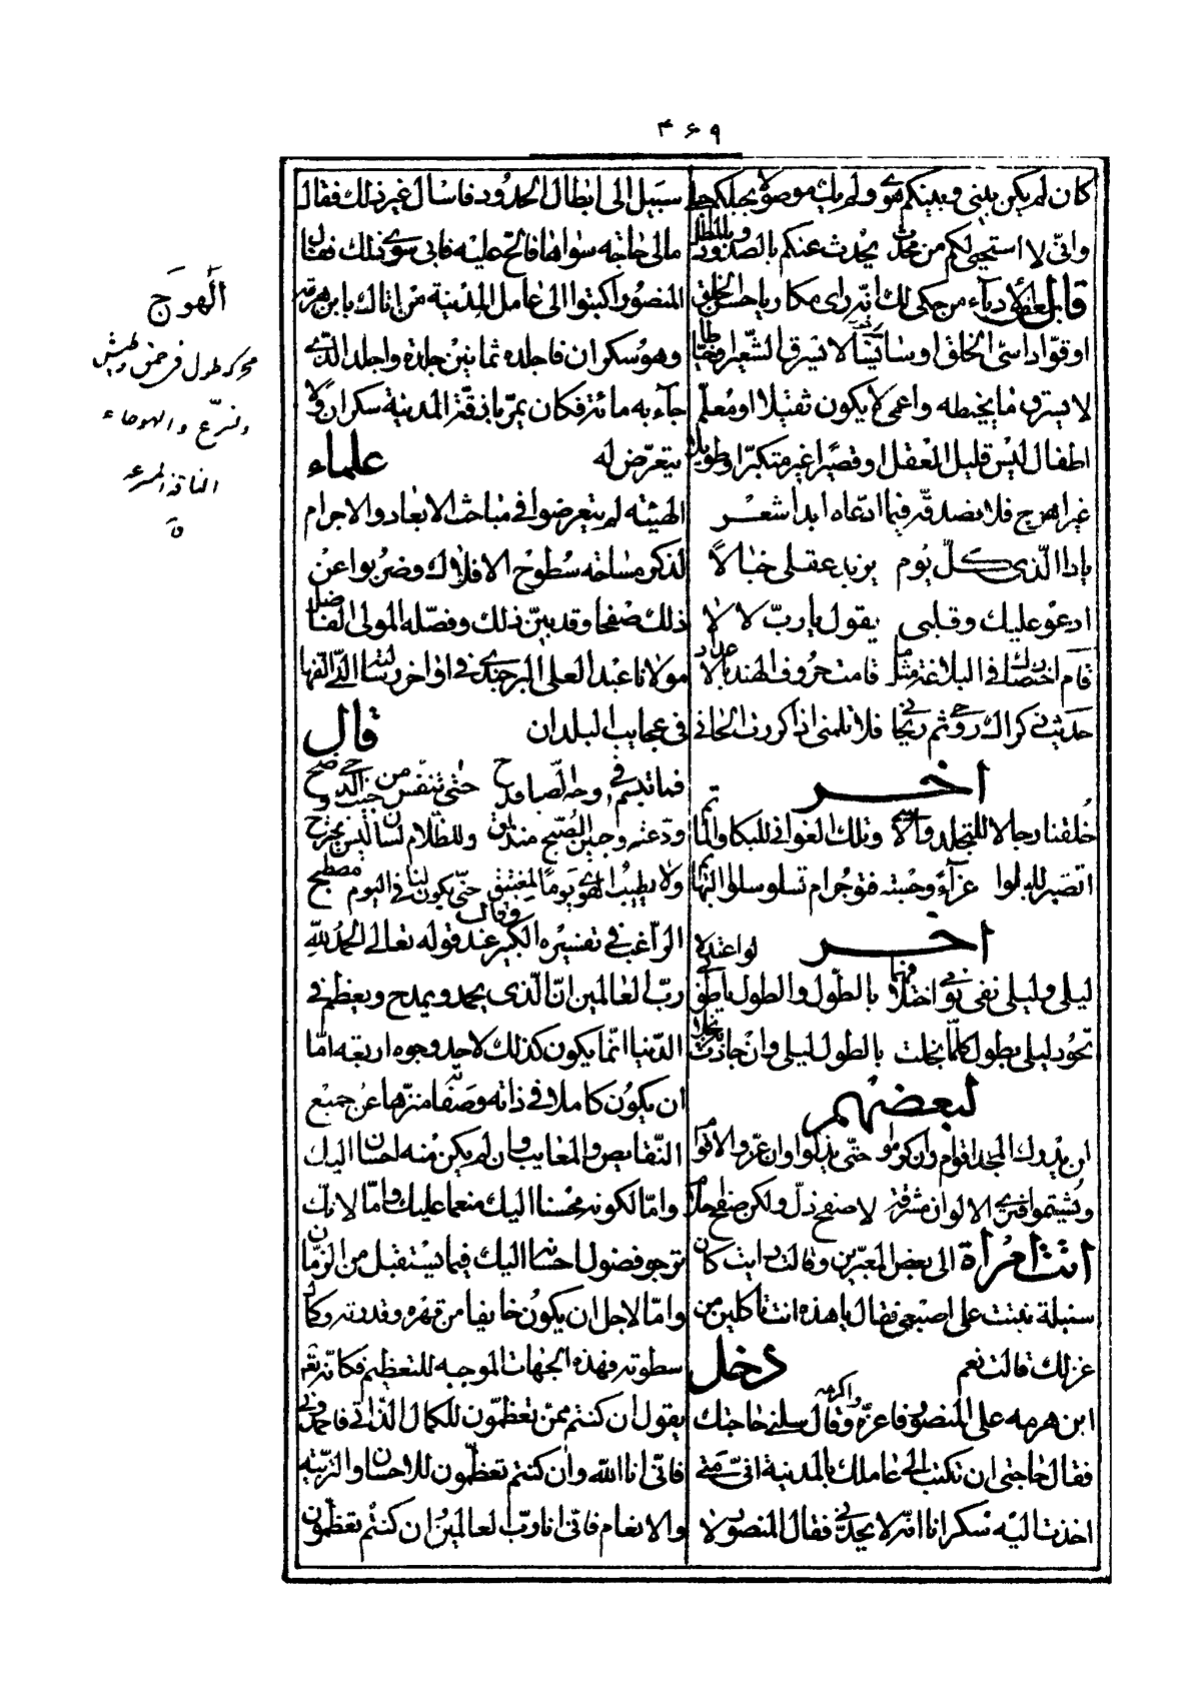 ۴۶۹
كان لم يكن بيني وبينكم هوى ولم يك موصولا بحبلكم حبلى
وانّى لا استحيى لكم من محدث يحدث عنكم بالصدود وبالمطل
قال بعض الأدباء من حكى لك انّه راى مكاريا حسن الخلق
او قوّادا سىّ الخلق او لا يسرق الشعير وخيّاطا
لا يسترق ما يخيطه واعمى لا يكون ثقيلا او معلّم
اطفال ليس قليل العقل او قصيرا غير متكبّر او طويلا
غير اهوج فلا تصدّقه فيما ادّعاه ابدا شعر
يا ذا الّذى كلّ يوم يزيد عقلى خبالا
ادعو عليك وقلبى يقول يا ربّ لا لا
حديثى
آخر
خلقنا رجالا للتجلد والاسى وتلك الغوانى للبكا والماتم
اتصبر للبلوا عزآء وحسبة فتوجر ام تسلو سلو البهائم
آخر لو اعتدلا
ليلى وليلى نفى نومى اختلافهما بالطّول والطول يا طوبى
تجود ليلى بطول كلّما بخلت بالطول ليلى وان جادت به بخلا
لبعضهم
لن يدرك المجد اقوام وان كرموا حتّى يذلّوا وان عزّوا لاقوام
ويشتموا فترى الالوان مشرقة لا صفح ذلّ ولكن صفح احلام
اتت امرأة الى بعض المعبّرين وقالت رايت كان
سنبلة نبتت على اصبعى فقال يا هذه انت تاكلين من
غزلك قالت نعم دخل
ابن هرمه على المنصور فاعزّه واكرمه وقال سلنى حاجتك
فقال حاجتى ان تكتب الى عاملك بالمدينة انّى متى
اخذت اليه سكرانا انّه لا يحدّنى فقال المنصور لا
سبيل الى ابطال الحدود فاسال غير ذلك فقال
مالى حاجة سواها فالحّ عليه فابى سوى ذلك فقال
المنصور اكتبوا الى عامل المدينة من اتاك بابن هرمه
وهو سكران فاجلده ثمانين جلدة واجلد الّذى
جآء به مائة فكان يمرّ بازقّة المدينة سكران ولا
يتعرّض له علماء
الهيئة لم يتعرضوا فى مباحث الابعاد والاجرام
لذكر مساحة سطوح الافلاك وضربوا عن
ذلك صفحا وقد بيّن ذلك وفصّله المولى الفاضل
مولانا عبد العلى البرجندى فى اواخر رسالته الّتى الّفها
فى عجايب البلدان قال
فما تبسم فى وجه الصّبا قدح حتّى تنفّس من جيب الدّجى صبح
الراغب فى تفسيره الكبير عند قوله تعالى الحمد للّه
وقال
ربّ العالمين انّ الّذى يحمد ويمدح ويعظم فى
الدّنيا انّما يكون كذلك لاحد وجوه اربعة امّا
ان يكون كاملا فى ذاته وصفاته منزّها عن جميع
النّقايص والمعايب وان لم يكن منه احسان اليك
وامّا لكونه محسنا اليك منعما عليك وامّا لانّك
ترجو فضول احسانه اليك فيما يستقبل من الزمان
وامّا لاجل ان يكون خايفا من قهره وقدرته وكمال
سطوته فهذه الجهات الموجبه للتعظيم فكانّه تع
يقول ان كنتم ممّن تعظمّون للكمال الذّاتى فاحمدونى
فانّى انا اللّه وان كنتم تعظّمون للاحسان والتّربية
والانعام فانّى انا ربّ العالمين وان كنتم تعظّمون
الهوج
محركة طول فى حمق وطيش
وتسرّع والهوجاء
الناقة المسرعه
ق